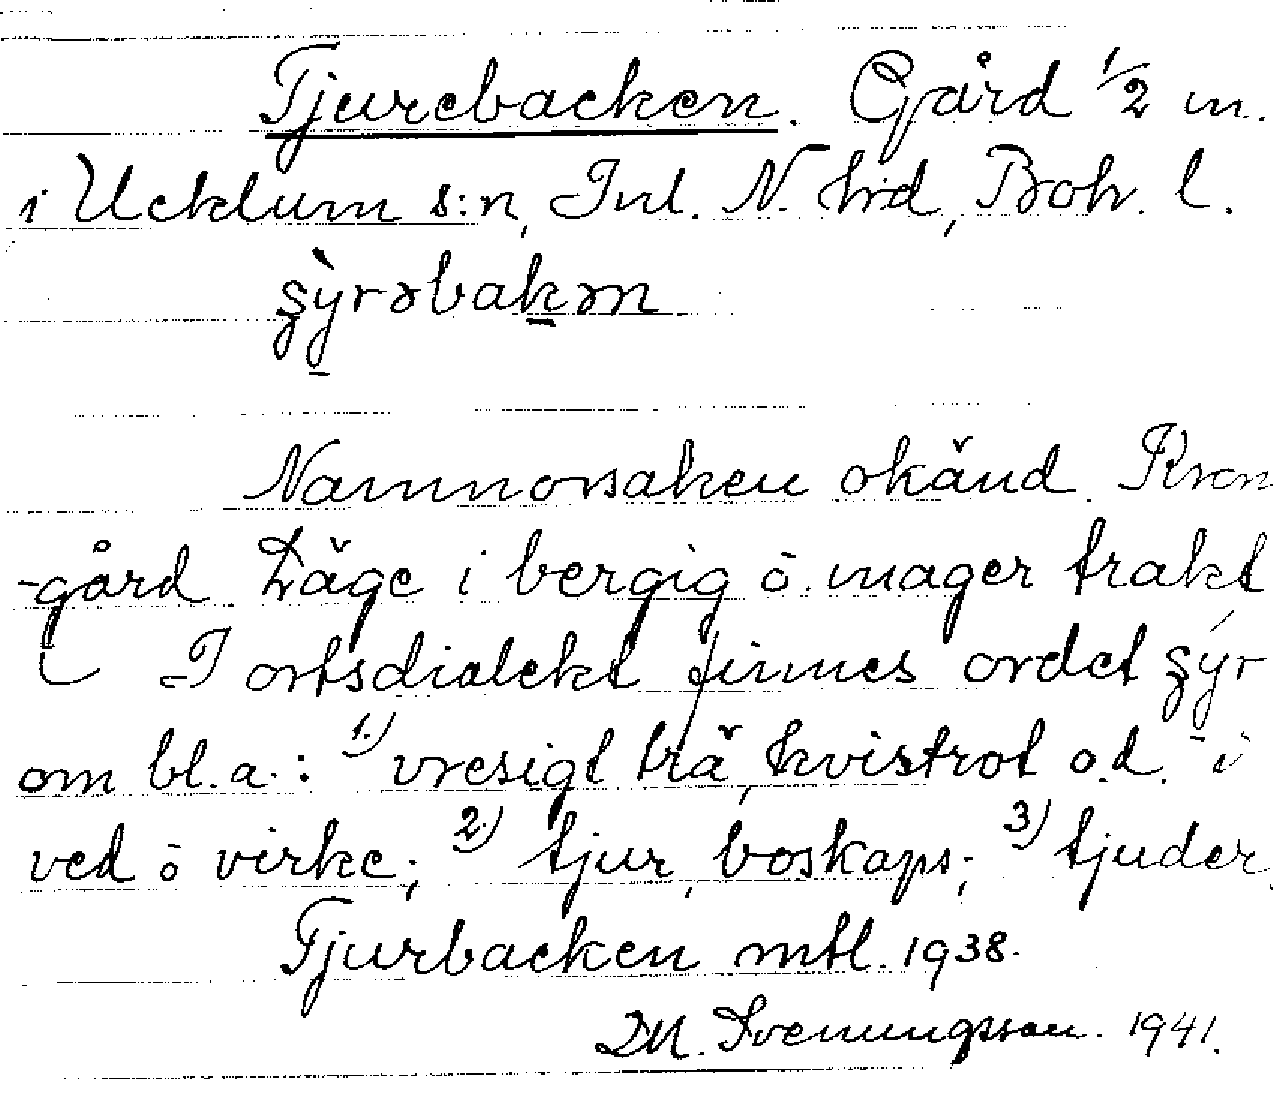 Tjurebacken. Gård 1/2 m.
i Ucklum s:n, Inl. N. hrd, Boh. l.
ʂỳrəbakən
Namnorsaken okänd. Kron
-gård Läge i bergig ö. mager trakt
I ortsdialekt finnes ordet ʂýr
om bl.a.: 1.) vresigt trä, kvistrot o.d. i
ved ö virke; 2.) tjur, boskaps; 3) tjuder.
Tjurbacken mtl. 1938.
DM. Svenungsson. 1941.